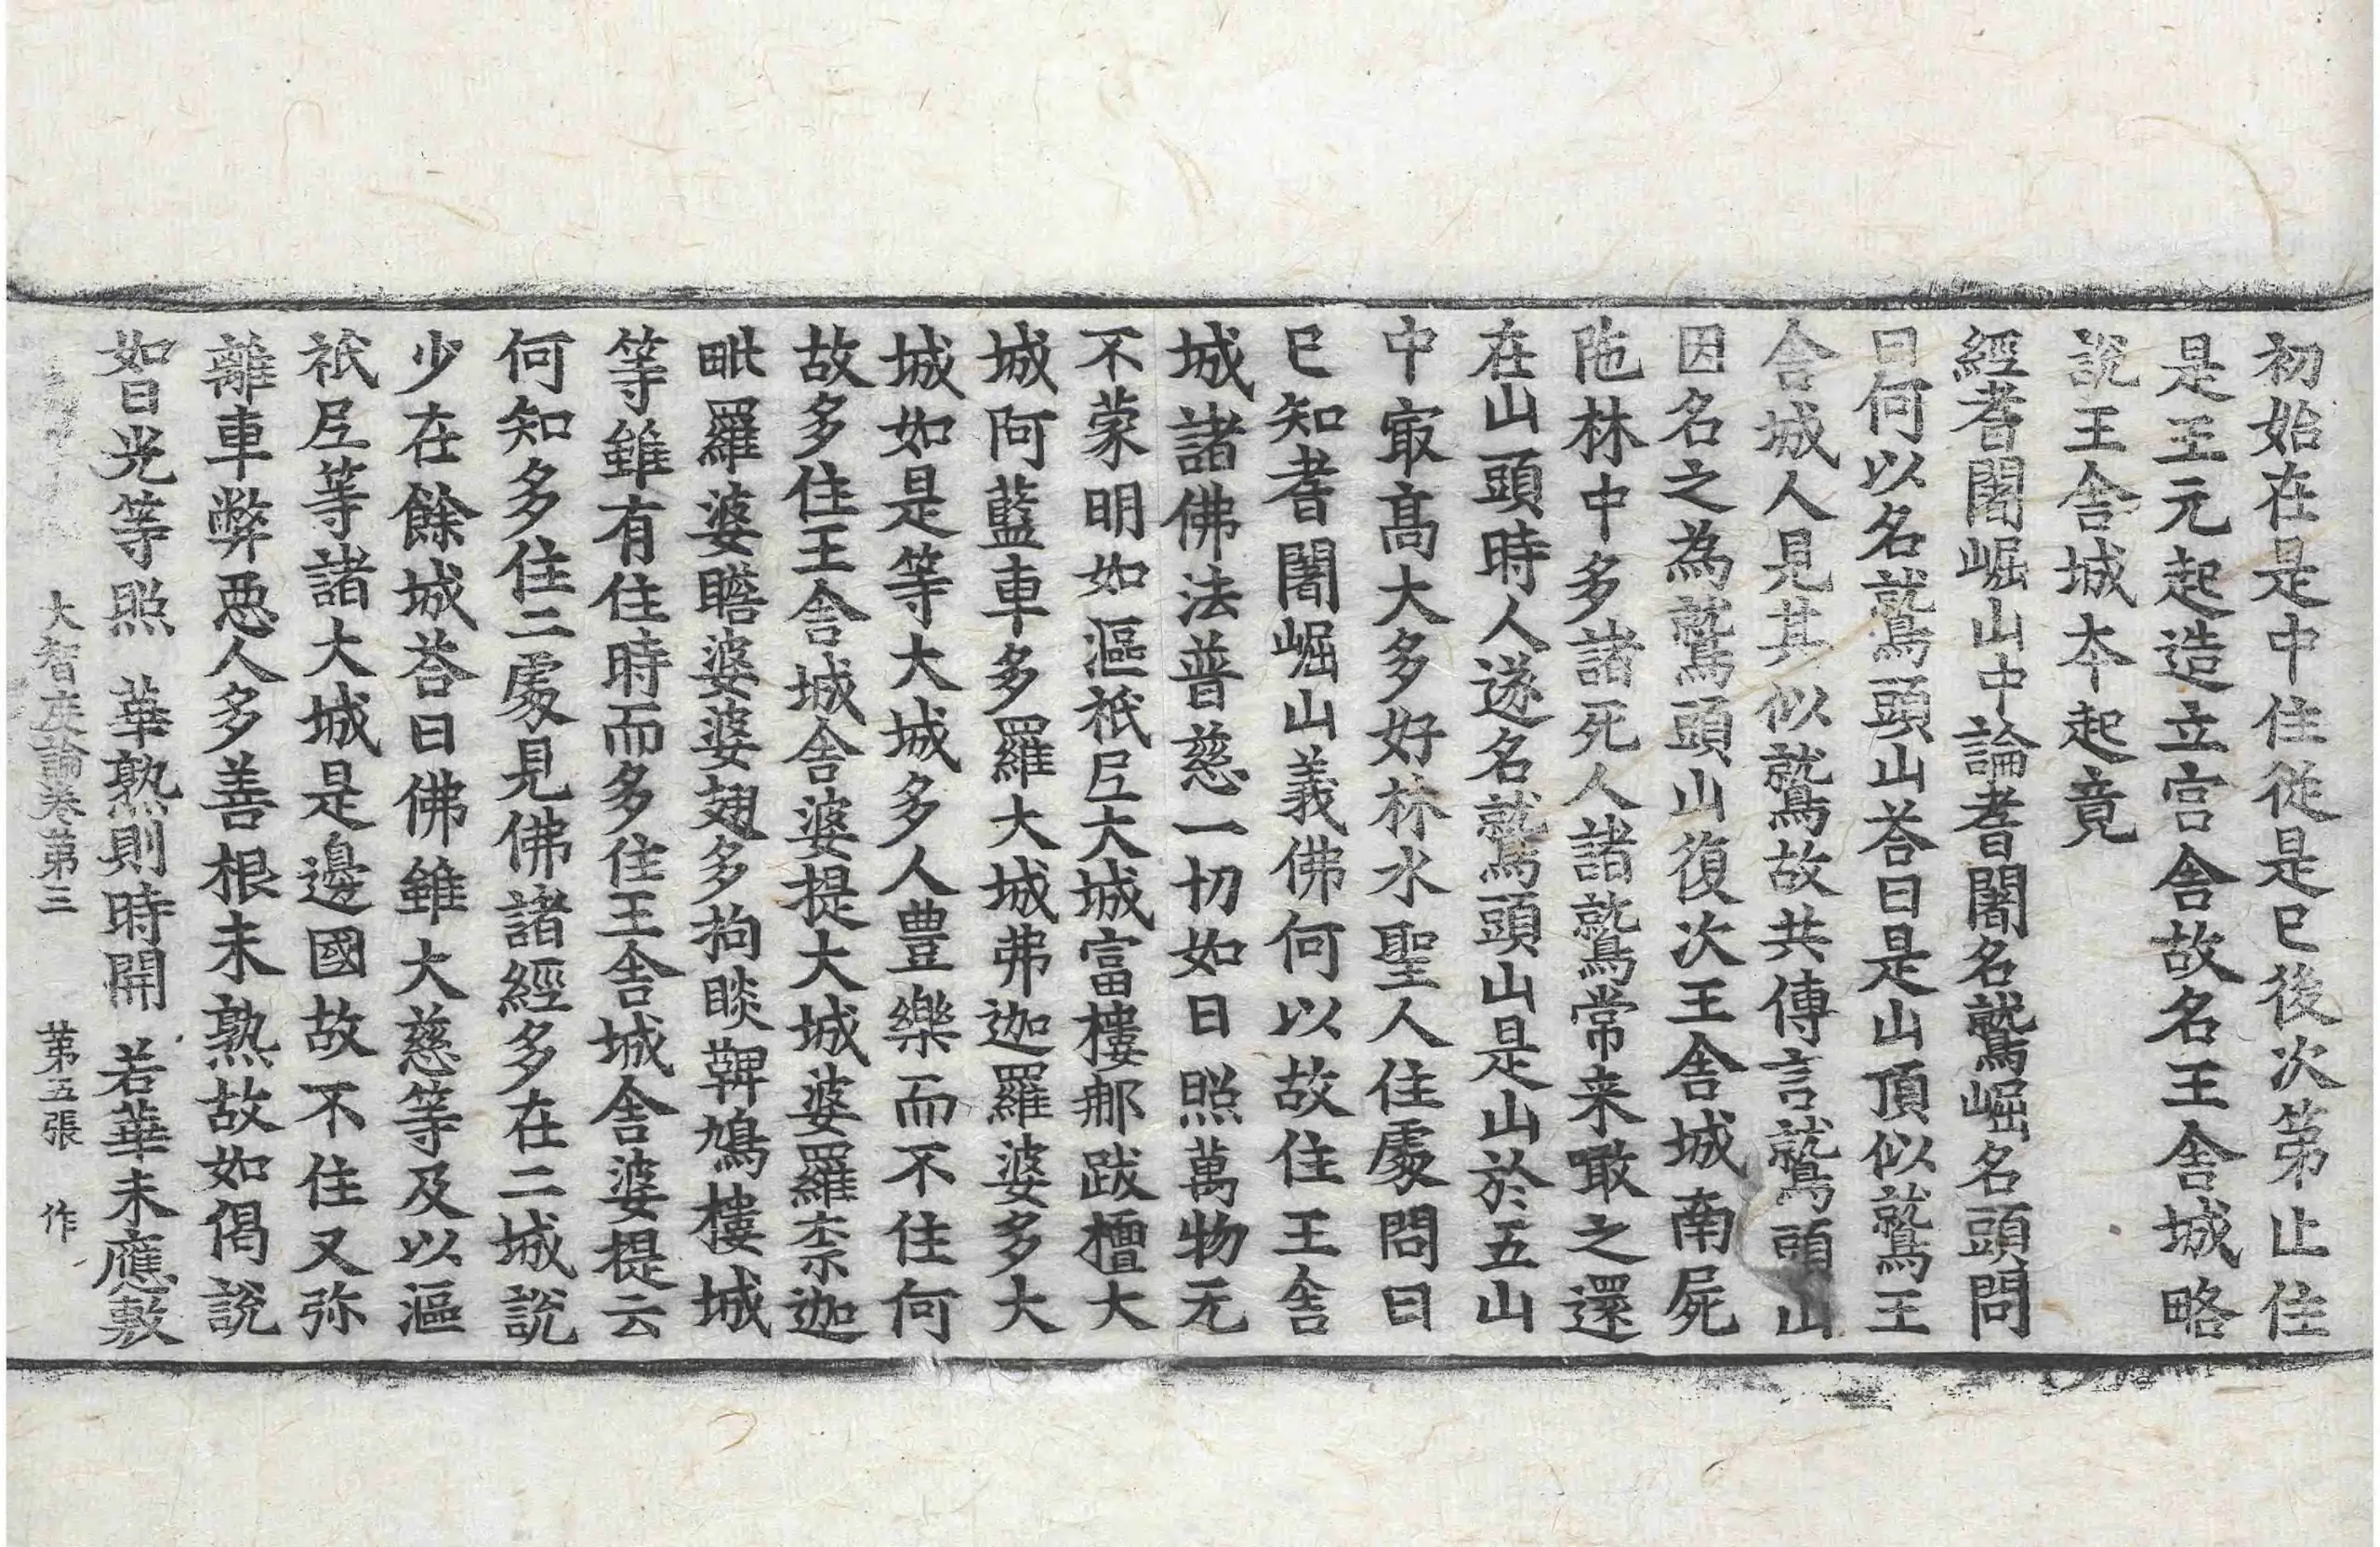 初始在是中住從是已後次第止住
是王元起造立宮舍故名王舍城略
說王舍城本起竟
經耆闍崛山中論耆闍名鷲崛名頭問
曰何以名鷲頭山荅曰是山頂似鷲王
舍城人見其似鷲故共傳言鷲頭山
因名之為鷲頭山復次王舍城南屍
陁林中多諸死人諸鷲常来噉之還
在山頭時人遂名鷲頭山是山於五山
中㝡高大多好林水聖人住處問曰
已知耆闍崛山義佛何以故住王舍
城諸佛法普慈一切如日照萬物无
不蒙明如漚祇尼大城富樓那跋檀大
城阿藍車多羅大城弗迦羅婆多大
城如是等大城多人豊樂而不住何
故多住王舍城舍婆提大城婆羅柰迦
毗羅婆瞻婆婆翅多拘睒鞞鳩樓城
等雖有住時而多住王舍城舍婆提云
何知多住二處見佛諸經多在二城說
少在餘城荅曰佛雖大慈等及以漚
祇尼等諸大城是邊國故不住又弥
離車弊惡人多善根未熟故如偈說
如日光等照　華熟則時開　若華未應敷
大智度論卷第三　第五張　作